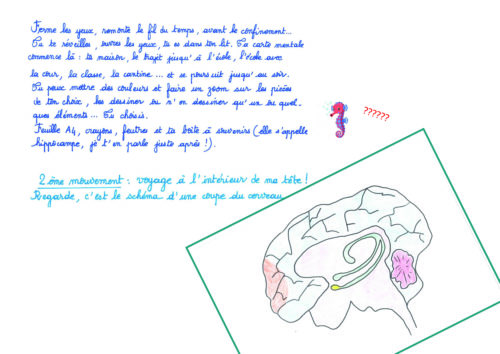 Ferme les yeux, remonte le fil du temps, avant le confinement...
Tu te réveilles, ouvres les yeux, tu es dans ton lit. Ta carte mentale
commence là : ta maison, le trajet jusqu'à l'école, l'école avec
la cour, la classe, la cantine ... et se poursuit jusqu'au soir.
Tu peux mettre des couleurs et faire un zoom sur les pièces
de ton choix, les dessiner ou n'en dessiner qu'un ou quel-
ques éléments ... Tu choisis.
Feuille A4, crayons, feutres et ta boîte à souvenirs (elle s'appelle
hippocampe, je t'en parle juste après !).
??????
2ème mouvement : voyage à l'intérieur de ma tête !
Regarde, c'est le schéma d'une coupe du cerveau